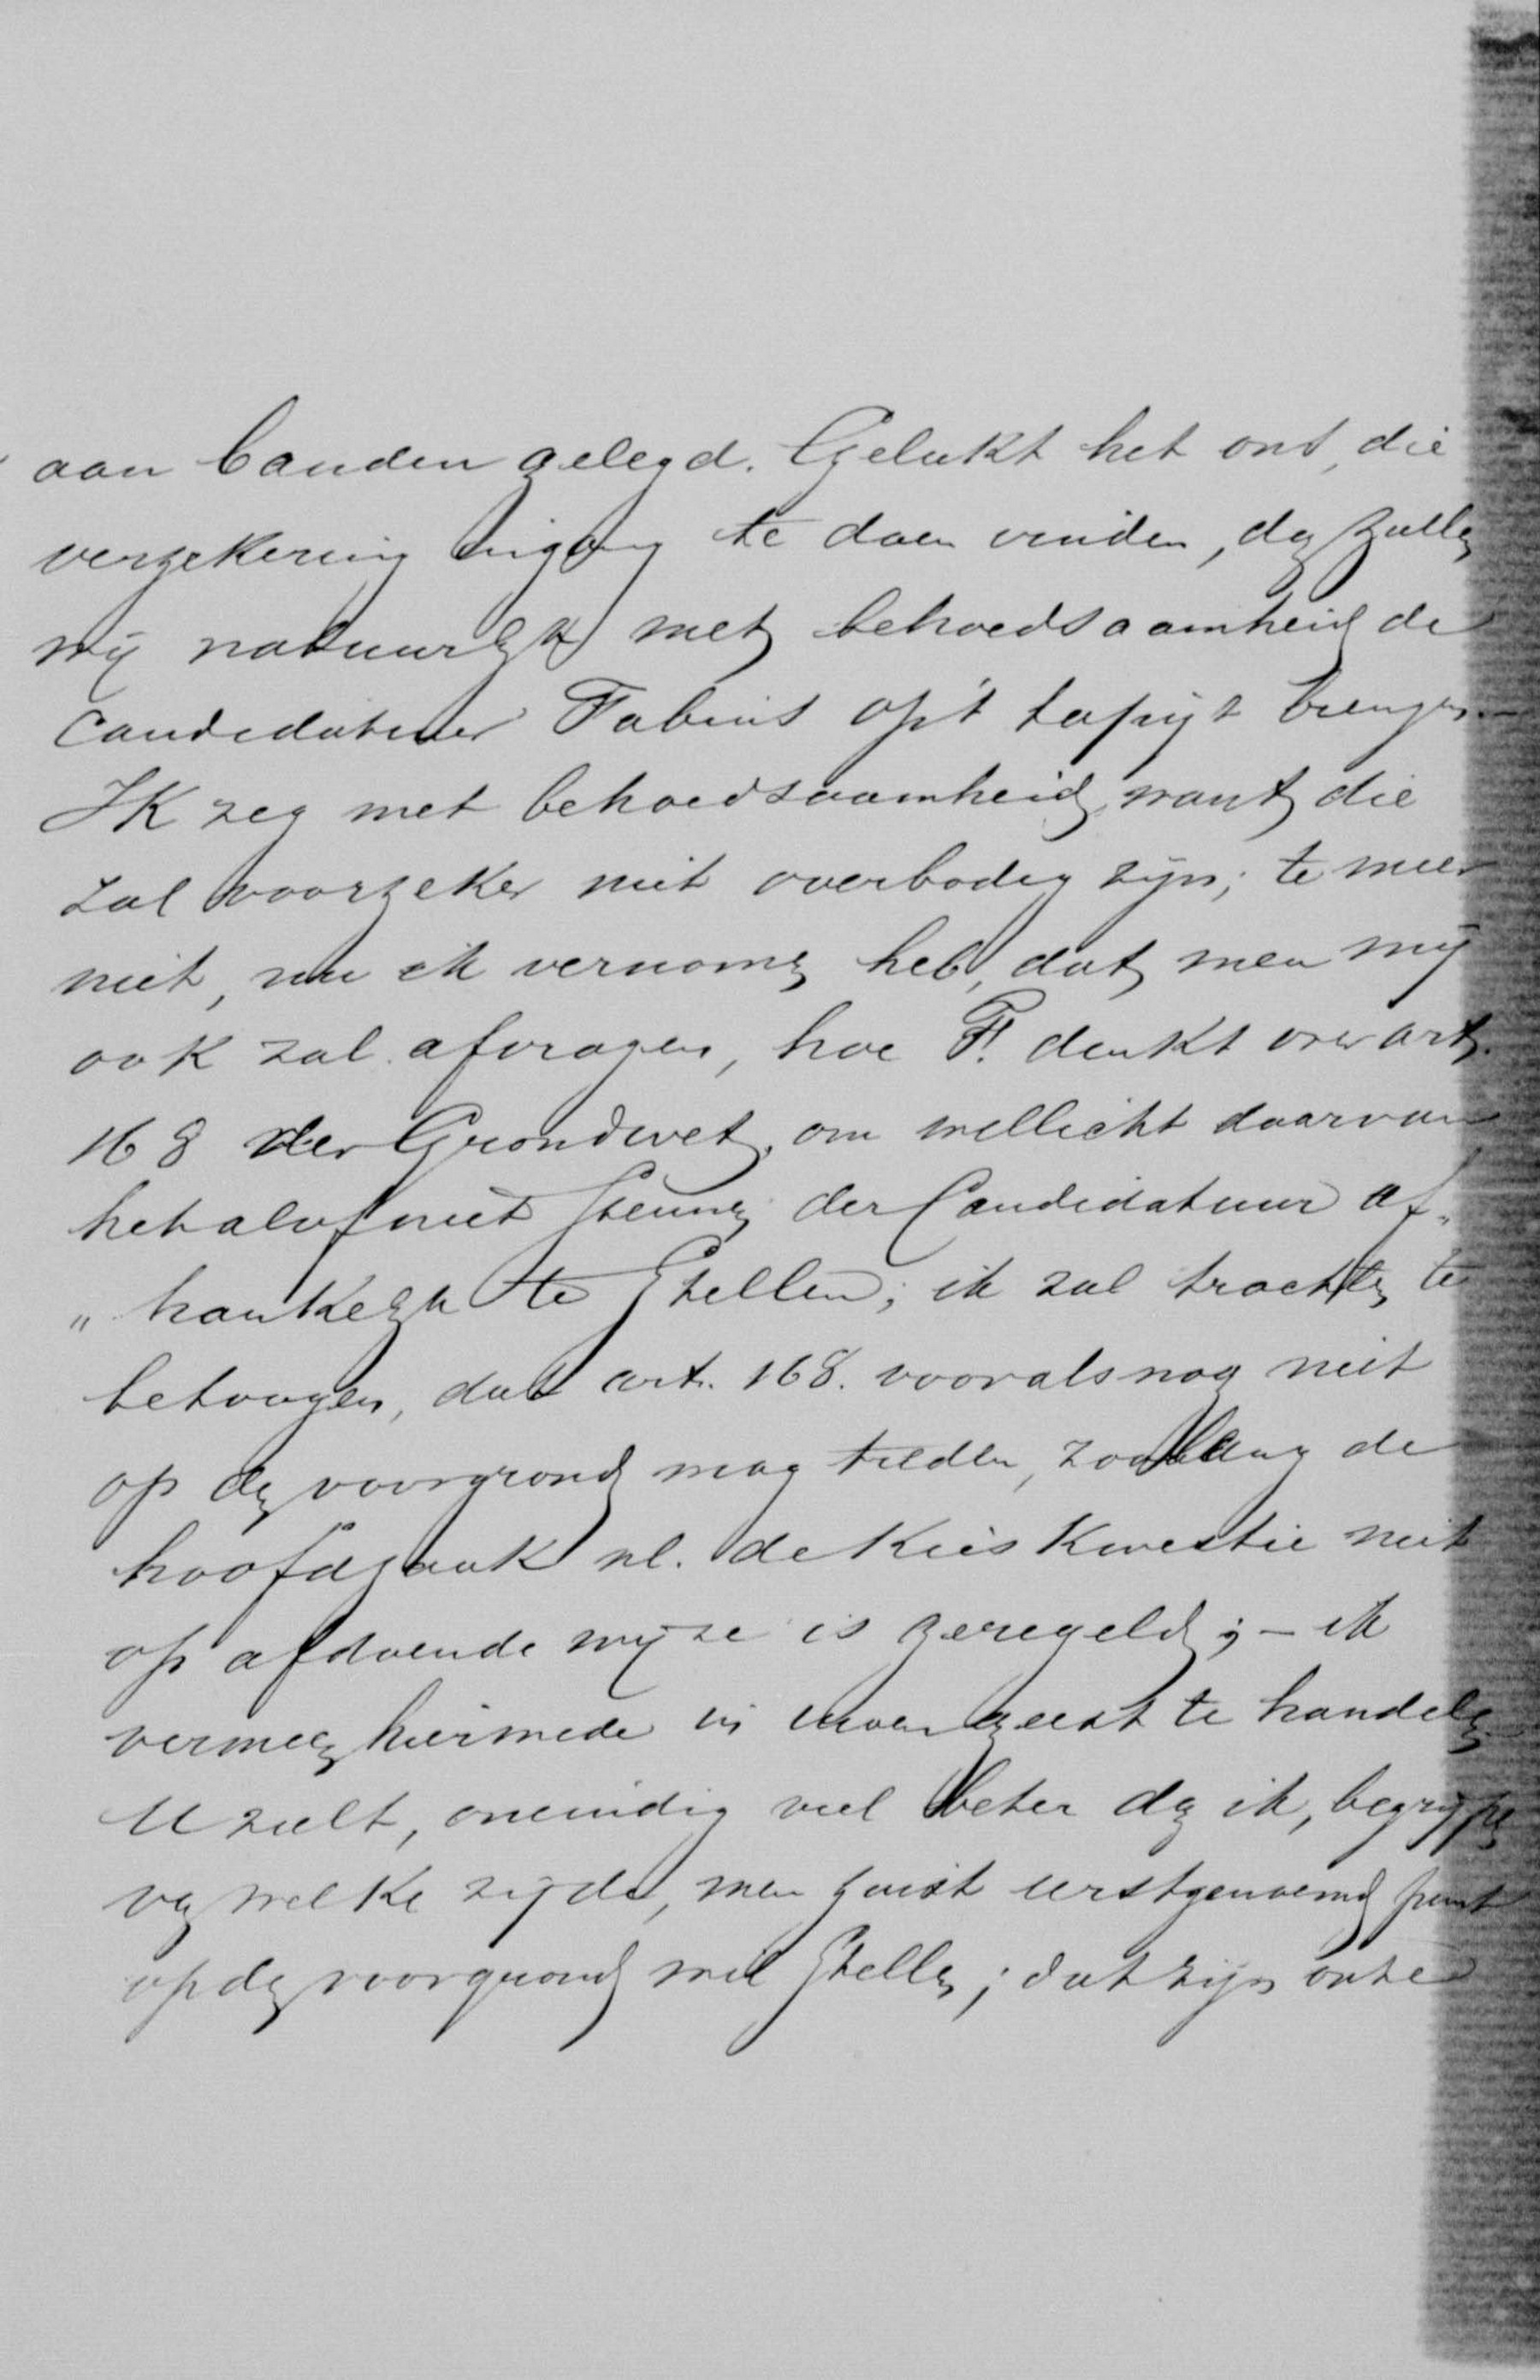 aan banden gelegd. Gelukt het ons, die
verzekering ingang te doen vinden, dan zullen
wij natuurlijk met behoedsaamheid de
candidatuur Fabius op 't tapijt brengen. —
Ik zeg met behoedsaamheid, want die
zal voorzeker niet overbodig zijn; te meer
niet, nu ik vernomen heb, dat men mij
ook zal afvragen, hoe F. denkt over art.
168 der Grondwet, om wellicht daarvan
het al of niet steunen der Candidatuur af„
„hankelijk te stellen; ik zal trachten te
betoogen, dat art. 168. vooralsnog niet
op den voorgrond mag treden, zoolang de
hoofdzaak nl. de Kieskwestie niet
op afdoende wijze is geregeld; – ik
vermeen hiermede in uwen geest te handelen
U zult, oneindig veel beter dan ik, begrijpen
van welke zijde, men juist eerstgenoemd punt
op den voorgrond wil stellen; dat zijn onze